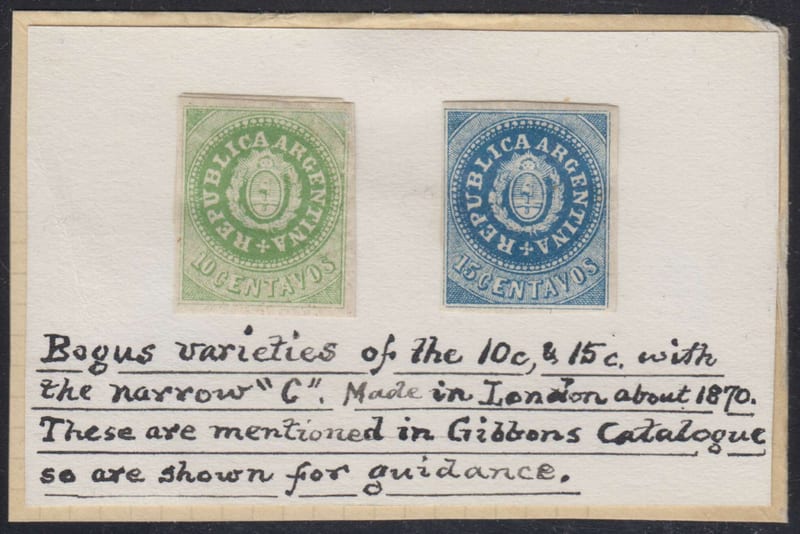 REPUBLICA ARGENTINA
10 CENTAVOS
REPUBLICA ARGENTINA
15 CENTAVOS
Bogus varieties of the 10c, & 15c. with
the narrow "C". Made in London about 1870.
These are mentioned in Gibbons Catalogue
so are shown for guidance.